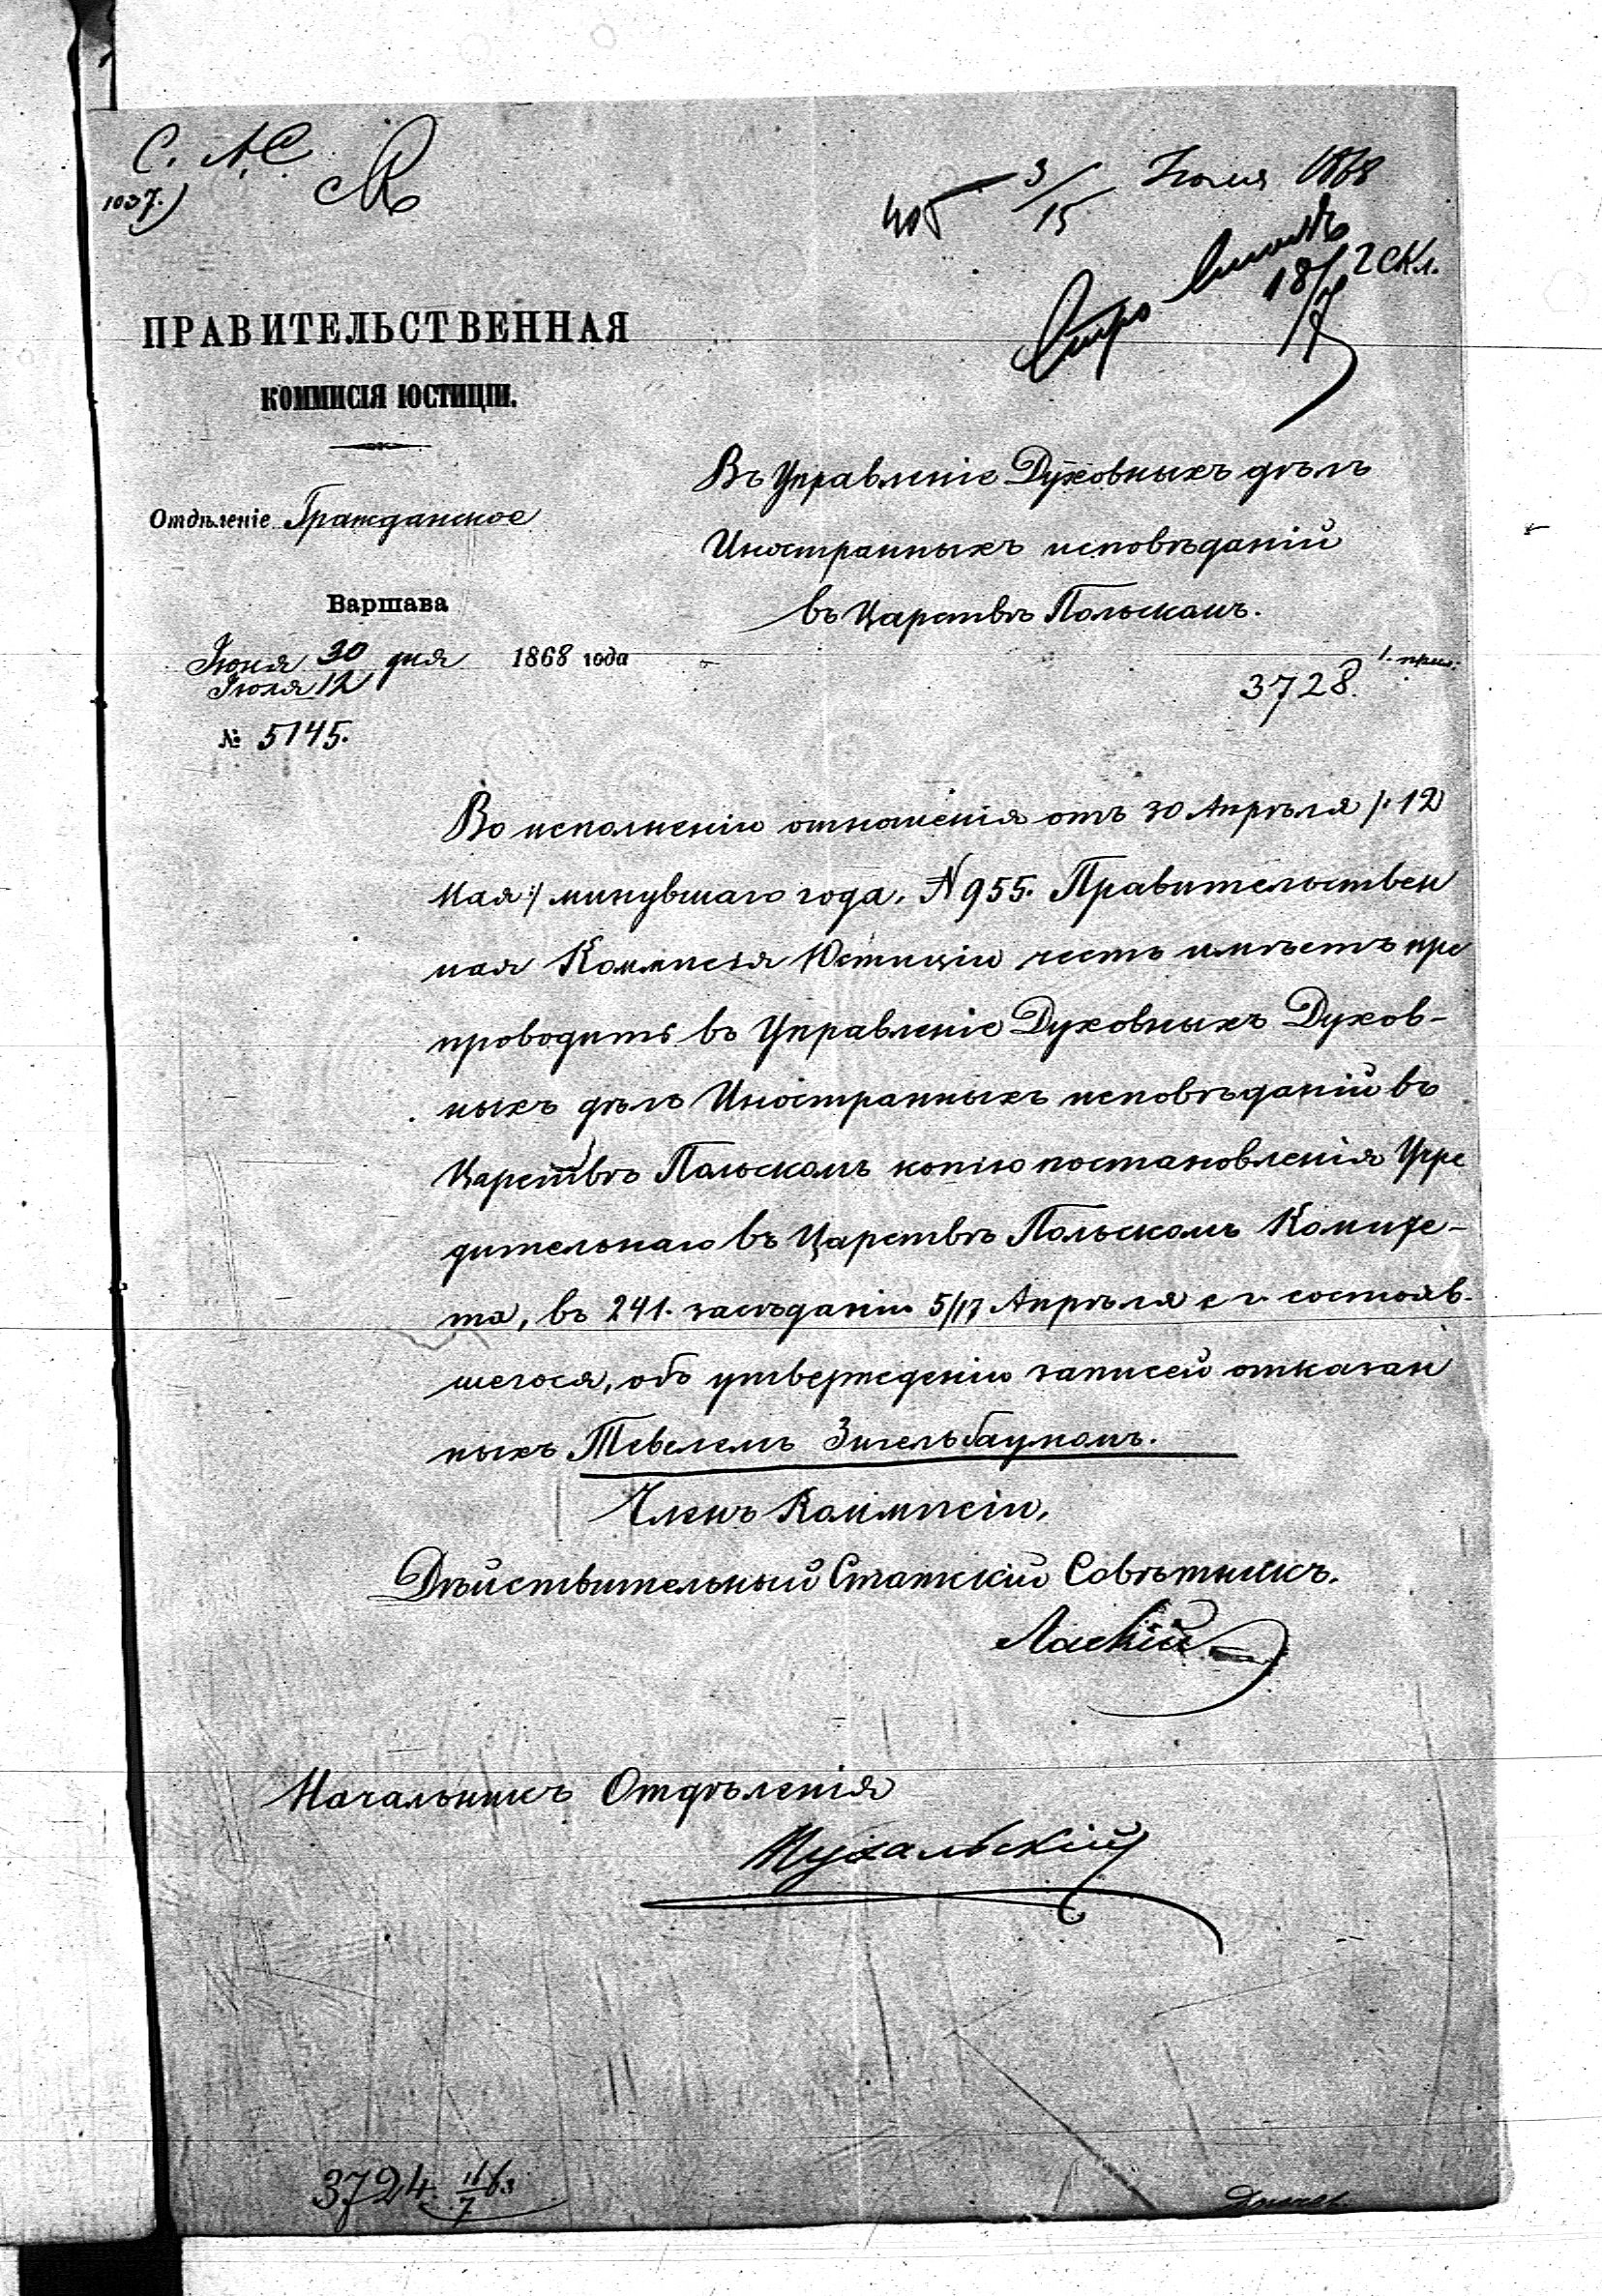 1037.)
3/15 Іюля 1868
18/7
ПРАВИТЕЛЬСТВЕННАЯ
КОММИСІЯ ЮСТИЦІИ.
Отдѣленіе Гражданское
Варшава
Іюня 30 дня 1868 года
Іюля 12
№ 5145.
Въ Управленіе Духовныхъ дѣлъ
Иностранныхъ исповѣданій
въ Царствѣ Польскомъ.
1. прил.
3728.
Во исполненіи отношенія отъ 30 Апрѣля /: 12
Мая :/ минувшаго года, N 955. Правительствен
ная Коммисія Юстиціи честь имѣетъ пре
проводить въ Управленіе Духовныхъ Духов-
ныхъ дѣлъ Иностранныхъ исповѣданій въ
Царствѣ Польскомъ копію постановленія Учре
дительнаго въ Царствѣ Польскомъ Комите-
та, въ 241. засѣданіи 5/17 Апрѣля с г. состояв-
шегося, объ утвержденіи записей отказан
ныхъ Тевелемъ Зигельбаумомъ.
Членъ Коммисіи,
Дѣйствительный Статскій Совѣтникъ.
Ласкій
Начальникъ Отдѣленія
Мухальскій
3724